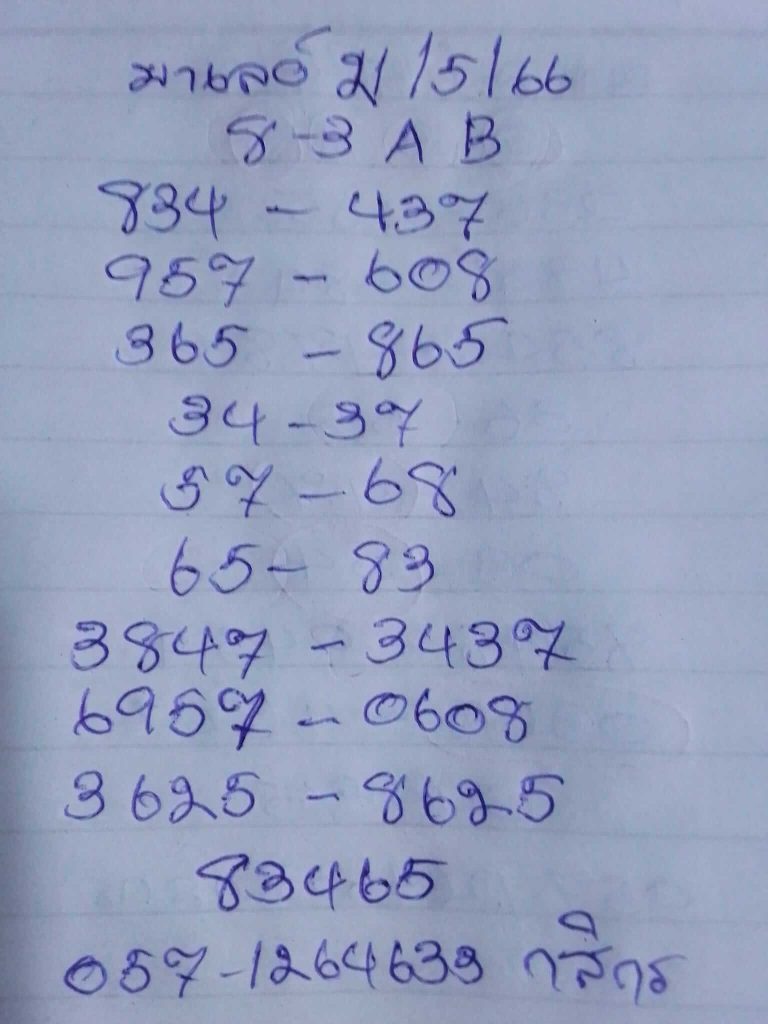 มาเลย์ ม/5/66
8-3 A B
834 - 437
957 - 608
365 - 865
34 - 37
57 - 68
65 - 83
3847 - 3437
6957 - 0608
3625 - 8625
83465
057-1264633 กสิกร